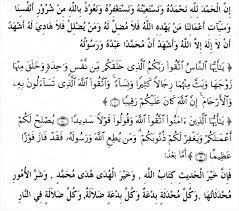 إِنَّ الْحَمْدَ لِلَّهِ نَحْمَدُهُ وَنَسْتَعِينُهُ وَنَسْتَغْفِرُهُ وَنَعُوذُ بِاللَّهِ مِنْ شُرُورِ أَنْفُسِنَا
وَسَيِّآتِ أَعْمَالِنَا مَنْ يَهْدِهِ اللَّهُ فَلَا مُضِلَّ لَهُ وَمَنْ يُضْلِلْ فَلَا هَادِيَ لَهُ أَشْهَدُ
أَنْ لَا إِلَهَ إِلَّا اللَّهُ وَأَشْهَدُ أَنَّ مُحَمَّدًا عَبْدُهُ وَرَسُولُهُ
﴿يَٰأَيُّهَا ٱلنَّاسُ ٱتَّقُوا رَبَّكُمُ ٱلَّذِي خَلَقَكُم مِّن نَّفْسٍ وَٰحِدَةٍ وَخَلَقَ مِنْهَا
زَوْجَهَا وَبَثَّ مِنْهُمَا رِجَالًا كَثِيرًا وَنِسَآءً وَٱتَّقُوا ٱللَّهَ ٱلَّذِي تَسَآءَلُونَ بِهِ
وَٱلْأَرْحَامَ إِنَّ ٱللَّهَ كَانَ عَلَيْكُمْ رَقِيبًا﴾
﴿يَٰأَيُّهَا ٱلَّذِينَ ءَامَنُوا ٱتَّقُوا ٱللَّهَ وَقُولُوا قَوْلًا سَدِيدًا يُصْلِحْ لَكُمْ
أَعْمَٰلَكُمْ وَيَغْفِرْ لَكُمْ ذُنُوبَكُمْ وَمَن يُطِعِ ٱللَّهَ وَرَسُولَهُ فَقَدْ فَازَ فَوْزًا
عَظِيمًا﴾ أَمَّا بَعْدُ:
فَإِنَّ خَيْرَ الْحَدِيثِ كِتَابُ اللَّهِ ، وَخَيْرَ الْهُدَى هُدَى مُحَمَّدٍ ، وَشَرَّ الْأُمُورِ
مُحْدَثَاتُهَا, وَكُلَّ مُحْدَثَةٍ بِدْعَةٌ وَكُلَّ بِدْعَةٍ ضَلَالَةٌ, وَكُلَّ ضَلَالَةٍ فِي النَّارِ